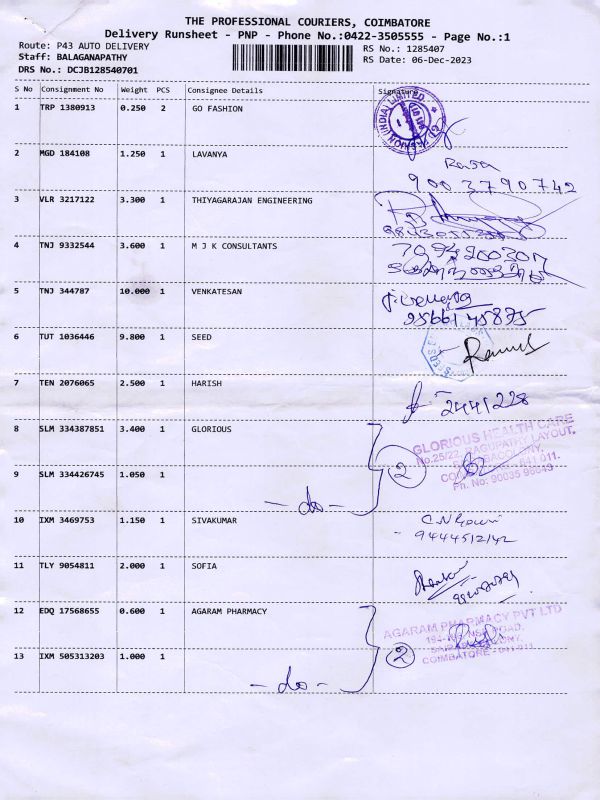 THE PROFESSIONAL COURIERS, COIMBATORE
Delivery Runsheet - PNP - Phone No.:0422-3505555 - Page No.:1
Route: P43 AUTO DELIVERY
RS No.: 1285407
Staff: BALAGANAPATHY
RS Date: 06-Dec-2023
DRS No.: DCJB128540701
S No Consignment No Weight PCS Consignee Details Signature
1 TRP 1380913 0.250 2 GO FASHION
(INDIA) LIMITED
2 MGD 184108 1.250 1 LAVANYA
9003790742
3 VLR 3217122 3.300 1 THIYAGARAJAN ENGINEERING
4 TNJ 9332544 3.600 1 M J K CONSULTANTS
5 TNJ 344787 10.000 1 VENKATESAN
9566145875
6 TUT 1036446 9.800 1 SEED
7 TEN 2076065 2.500 1 HARISH
2441228
8 SLM 334387851 3.400 1 GLORIOUS
2
GLORIOUS HEALTH CARE
No.25/22, LAYOUT,
Ph. No: 90035
9 SLM 334426745 1.050 1
- do -
10 IXM 3469753 1.150 1 SIVAKUMAR
9444512142
11 TLY 9054811 2.000 1 SOFIA
12 EDQ 17568655 0.600 1 AGARAM PHARMACY
2
AGARAM PHARMACY PVT LTD
ROAD,
COIMBATORE - 641 011
13 IXM 505313203 1.000 1
- do -